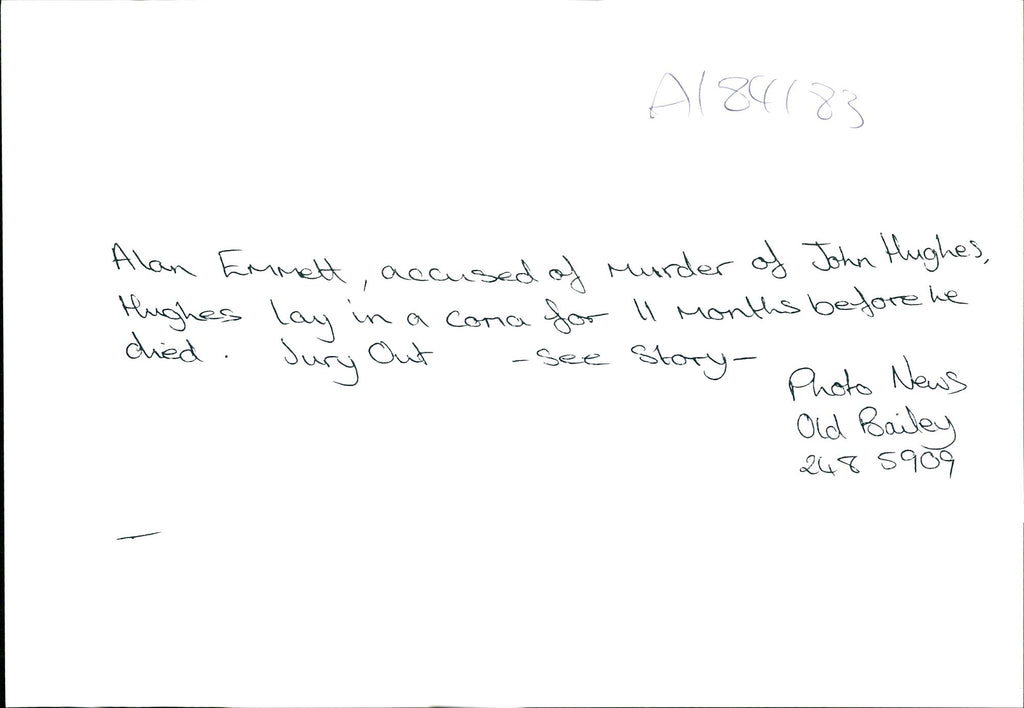 A184183
Alan Emmett, accused of murder of John Hughes,
Hughes lay in a coma for 11 months before he
died. Jury Out - See Story -
Photo News
Old Bailey
248 5909